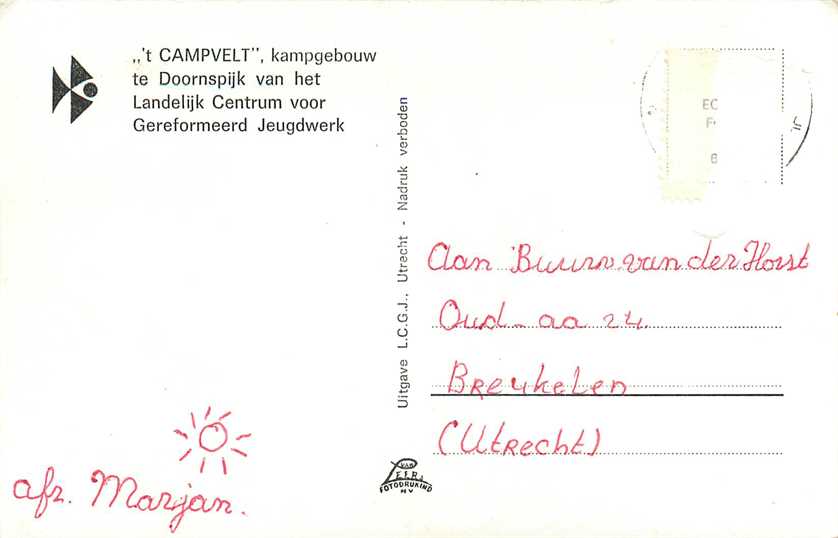 „'t CAMPVELT”, kampgebouw
te Doornspijk van het
Landelijk Centrum voor
Gereformeerd Jeugdwerk
Uitgave L.C.G.J., Utrecht - Nadruk verboden
Aan Buurv. van der Horst
Oud-aa 24
Breukelen
(Utrecht)
afz. Marjan.
VAN
LEER's
FOTODRUKIND
NV